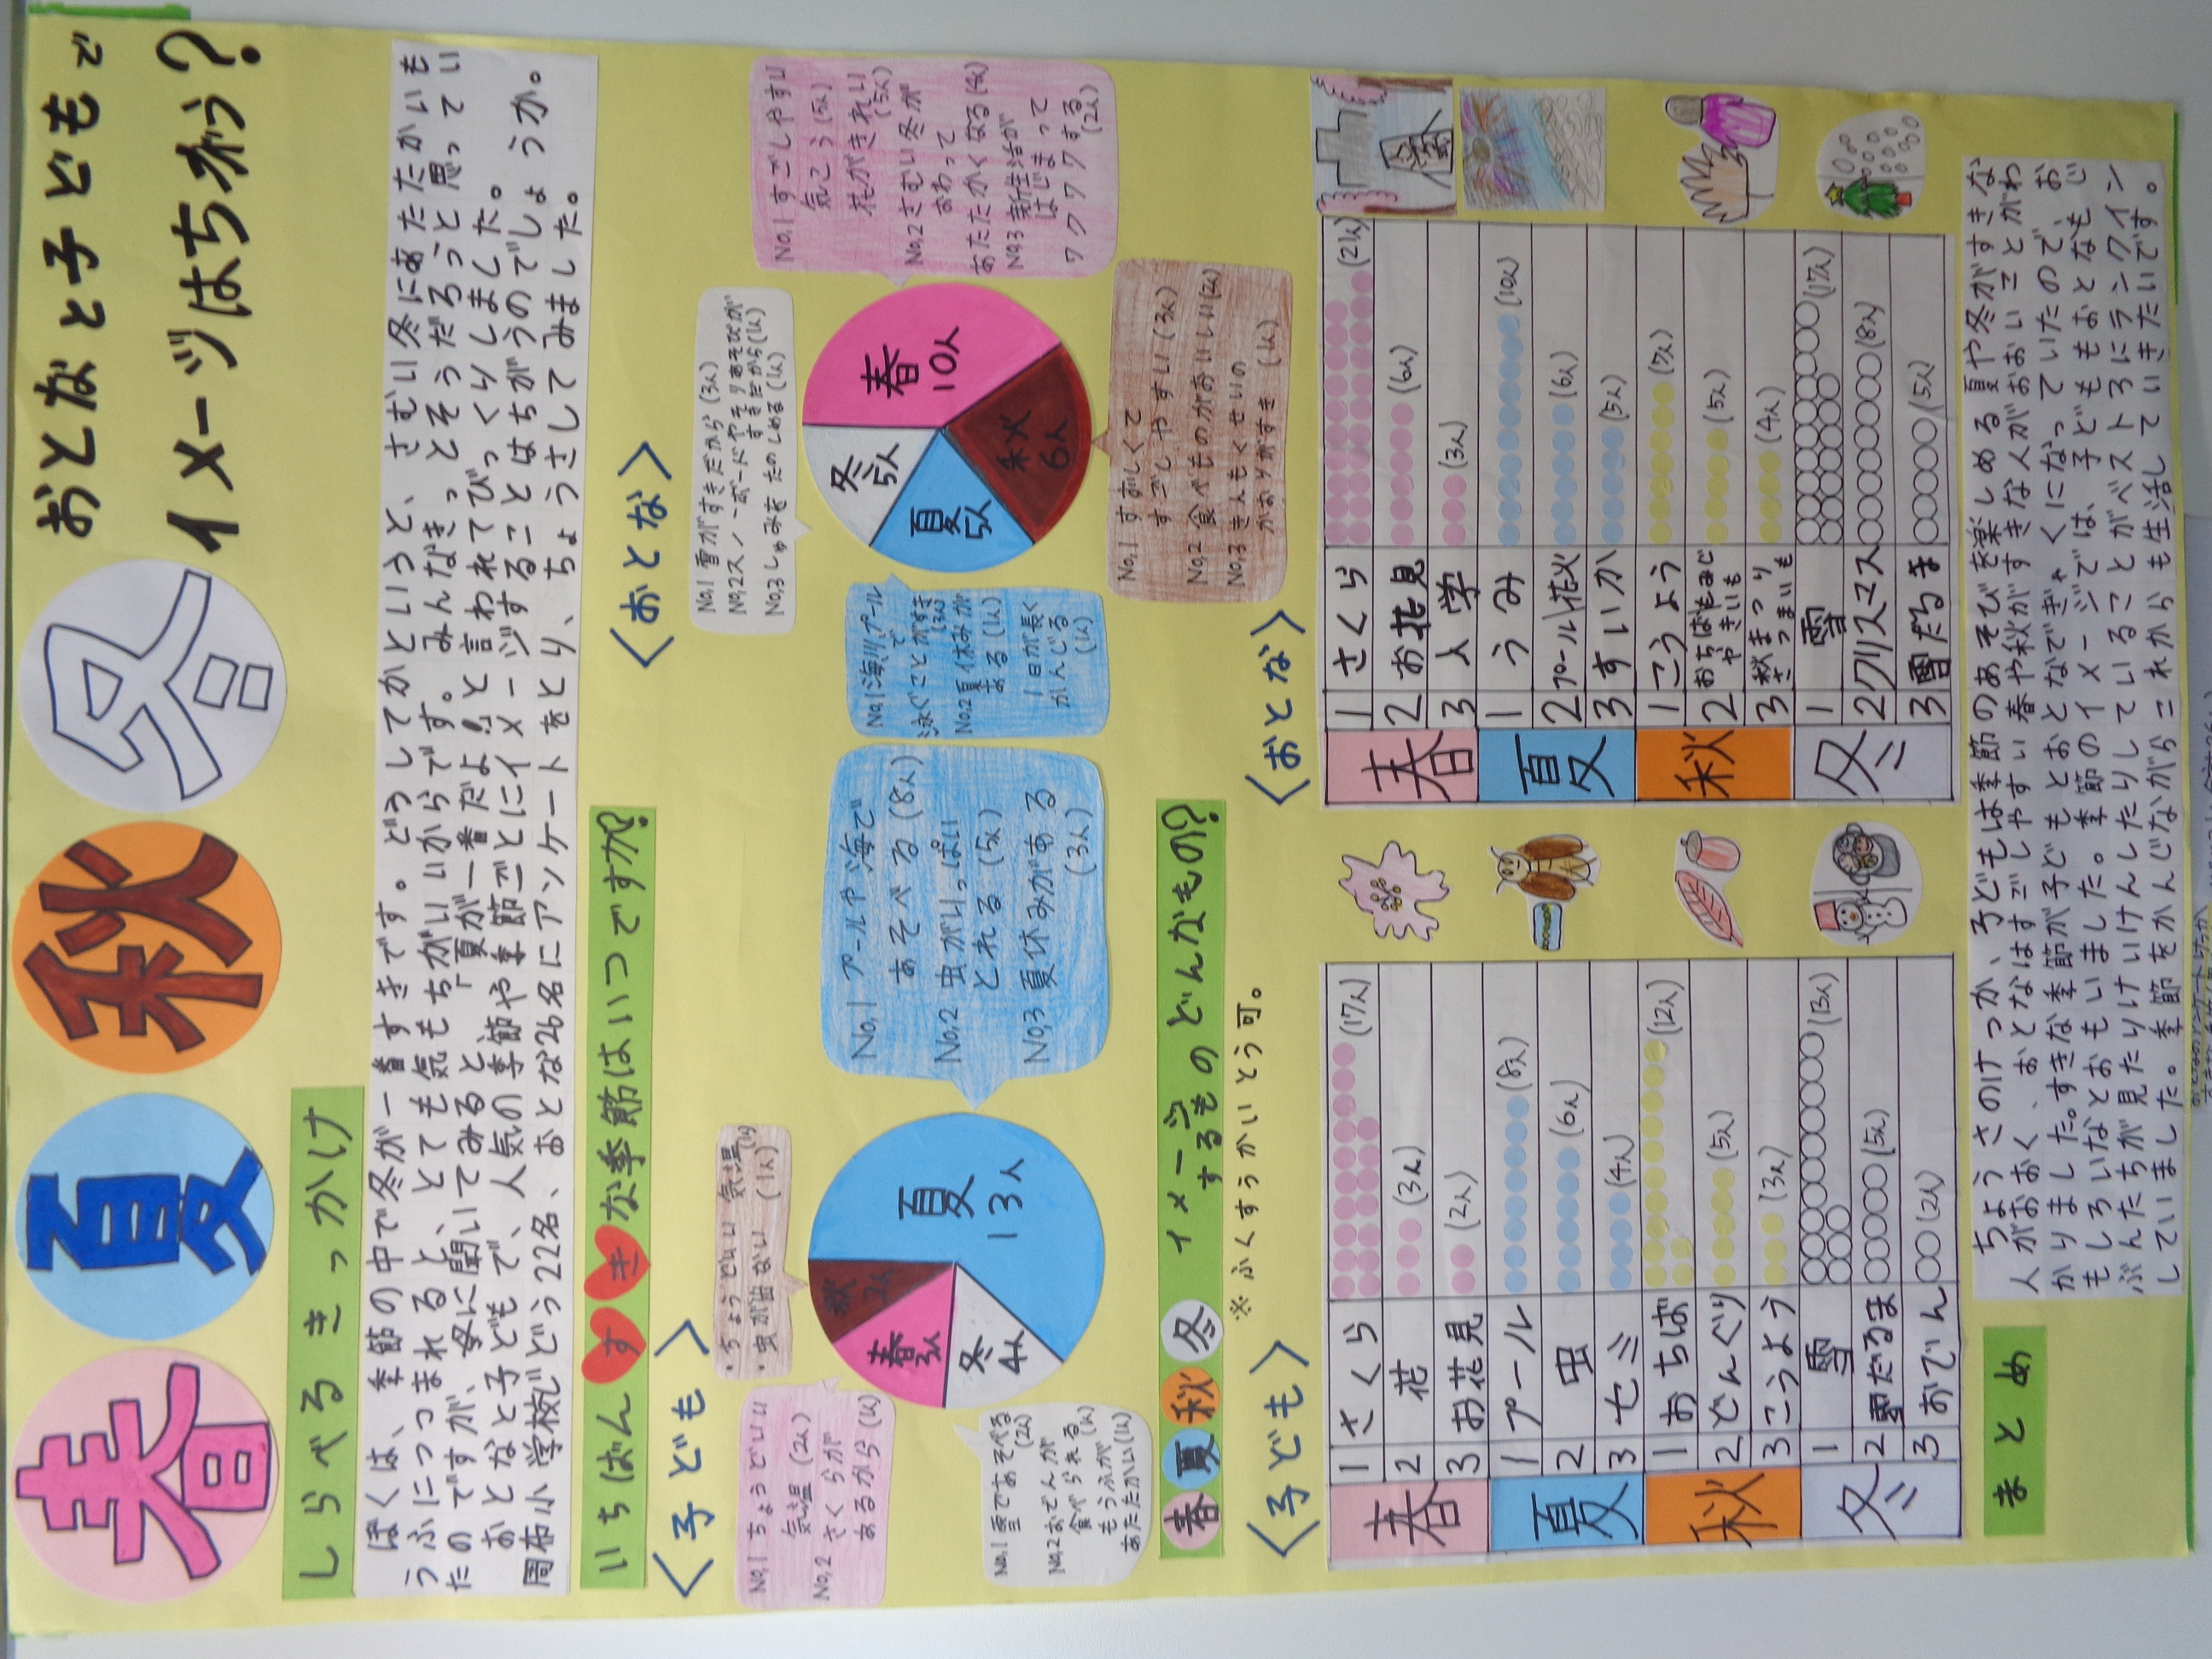 春夏秋冬
おとなと子どもで
イメージはちがう?
しらべるきっかけ
ぼくは、季節の中で冬が一番すきです。どうしてかというと、さむい冬にあたたかいも
うふにつつまれると、とても気もちがいいからです。みんなきっとそうだろうと思ってい
たのですが、妹に聞いてみると、「夏が一番だよ!」と言われてびっくりしました。
おとなと子どもで、人気の季節や季節ごとにイメージすることはちがうのでしょうか。
周布小学校じどう22名、おとな26名にアンケートをとり、ちょうさしてみました。
いちばんすきな季節はいつですか?
〈子ども〉
・ちょうどいい気温(1人)
・虫が出ない(1人)
No,1 ちょうどいい
気温(2人)
No,2 さくらが
あるから(1人)
秋
2人
春
3人
冬
4人
夏
13人
No,1 雪であそべる
(2人)
No,2 おでんが
食べられる(1人)
もうふが
あたたかい(1人)
No,1 プールや海で
あそべる(8人)
No,2 虫がいっぱい
とれる(5人)
No,3 夏休みがある
(3人)
〈おとな〉
No,1 雪がすきだから(3人)
No,2スノーボードやそりあそびが
すきだから(1人)
No,3しゅみをたのしめる(1人)
No,1 すごしやすい
気こう(5人)
花がきれい
(5人)
No,2 さむい冬が
おわって
あたたかくなる(4人)
No,3 新生活が
はじまって
ワクワクする
(2人)
冬
5人
春
10人
夏
5人
秋
6人
No,1 海川プール
で
泳ぐことがすき
(3人)
No,2 夏休みが
ある(1人)
1日が長く
かんじる
(1人)
No,1 すずしくて
すごしやすい(3人)
No,2 食べものがおいしい(2人)
No,3 きんもくせいの
かおりがすき(1人)
春夏秋冬 イメージするものどんなもの?
※ふくすうかいとう可。
〈子ども〉
春
1 さくら (17人)
2 花 (3人)
3 お花見 (2人)
夏
1 プール (8人)
2 虫 (6人)
3 セミ (4人)
秋
1 おちば (12人)
2 どんぐり (5人)
3 こうよう (3人)
冬
1 雪 (13人)
2 雪だるま (5人)
3 おでん (2人)
〈おとな〉
春
1 さくら (21人)
2 お花見 (6人)
3 入学 (3人)
夏
1 うみ (10人)
2 プール花火 (6人)
3 すいか (5人)
秋
1 こうよう (7人)
2 おちばもみじ やきいも (5人)
3 秋まつり さつまいも (4人)
冬
1 雪 (17人)
2 クリスマス (8人)
3 雪だるま (5人)
まとめ
ちょうさのけっか、子どもは季節のあそびを楽しめる夏や冬がすきな
人がおおく、おとなはすごしやすい春や秋がすきな人がおおいことがわ
かりました。すきな季節が子どもとおとなでぎゃくになっていたので、お
もしろいなとおもいました。季節のイメージでは、子どももおとなもじ
ぶんたちが見たりけいけんしたりしていることがベスト3にランクイン
していました。季節をかんじながらこれからも生活していきたいです。